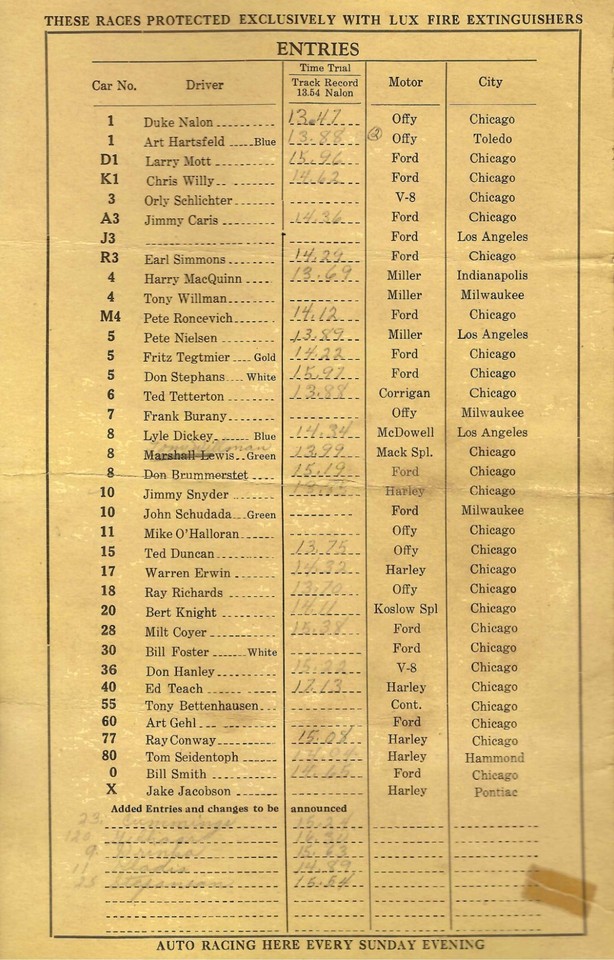 THESE RACES PROTECTED EXCLUSIVELY WITH LUX FIRE EXTINGUISHERS
ENTRIES
Car No. Driver Time Trial Track Record 13.54 Nalon Motor City
1 Duke Nalon 13.47 Offy Chicago
1 Art Hartsfeld Blue 13.88 (2) Offy Toledo
D1 Larry Mott 15.96 Ford Chicago
K1 Chris Willy 14.62 Ford Chicago
3 Orly Schlichter V-8 Chicago
A3 Jimmy Caris 14.36 Ford Chicago
J3 Ford Los Angeles
R3 Earl Simmons 14.29 Ford Chicago
4 Harry MacQuinn 13.69 Miller Indianapolis
4 Tony Willman Miller Milwaukee
M4 Pete Roncevich 14.12 Ford Chicago
5 Pete Nielsen 13.89 Miller Los Angeles
5 Fritz Tegtmier Gold 14.22 Ford Chicago
5 Don Stephans White 15.97 Ford Chicago
6 Ted Tetterton 13.88 Corrigan Chicago
7 Frank Burany Offy Milwaukee
8 Lyle Dickey Blue 14.34 McDowell Los Angeles
8 Marshall Lewis Green 13.99 Mack Spl. Chicago
8 Don Brummerstet 15.19 Ford Chicago
10 Jimmy Snyder Harley Chicago
10 John Schudada Green Ford Milwaukee
11 Mike O'Halloran Offy Chicago
15 Ted Duncan 13.75 Offy Chicago
17 Warren Erwin 14.32 Harley Chicago
18 Ray Richards 13.70 Offy Chicago
20 Bert Knight 14.11 Koslow Spl Chicago
28 Milt Coyer 15.38 Ford Chicago
30 Bill Foster White Ford Chicago
36 Don Hanley 15.22 V-8 Chicago
40 Ed Teach 17.13 Harley Chicago
55 Tony Bettenhausen Cont. Chicago
60 Art Gehl Ford Chicago
77 Ray Conway 15.08 Harley Chicago
80 Tom Seidentoph Harley Hammond
0 Bill Smith 14.65 Ford Chicago
X Jake Jacobson Harley Pontiac
Added Entries and changes to be announced
23 Cummings 15.24
120
9 15.63
11 14.89
25 15.54
AUTO RACING HERE EVERY SUNDAY EVENING